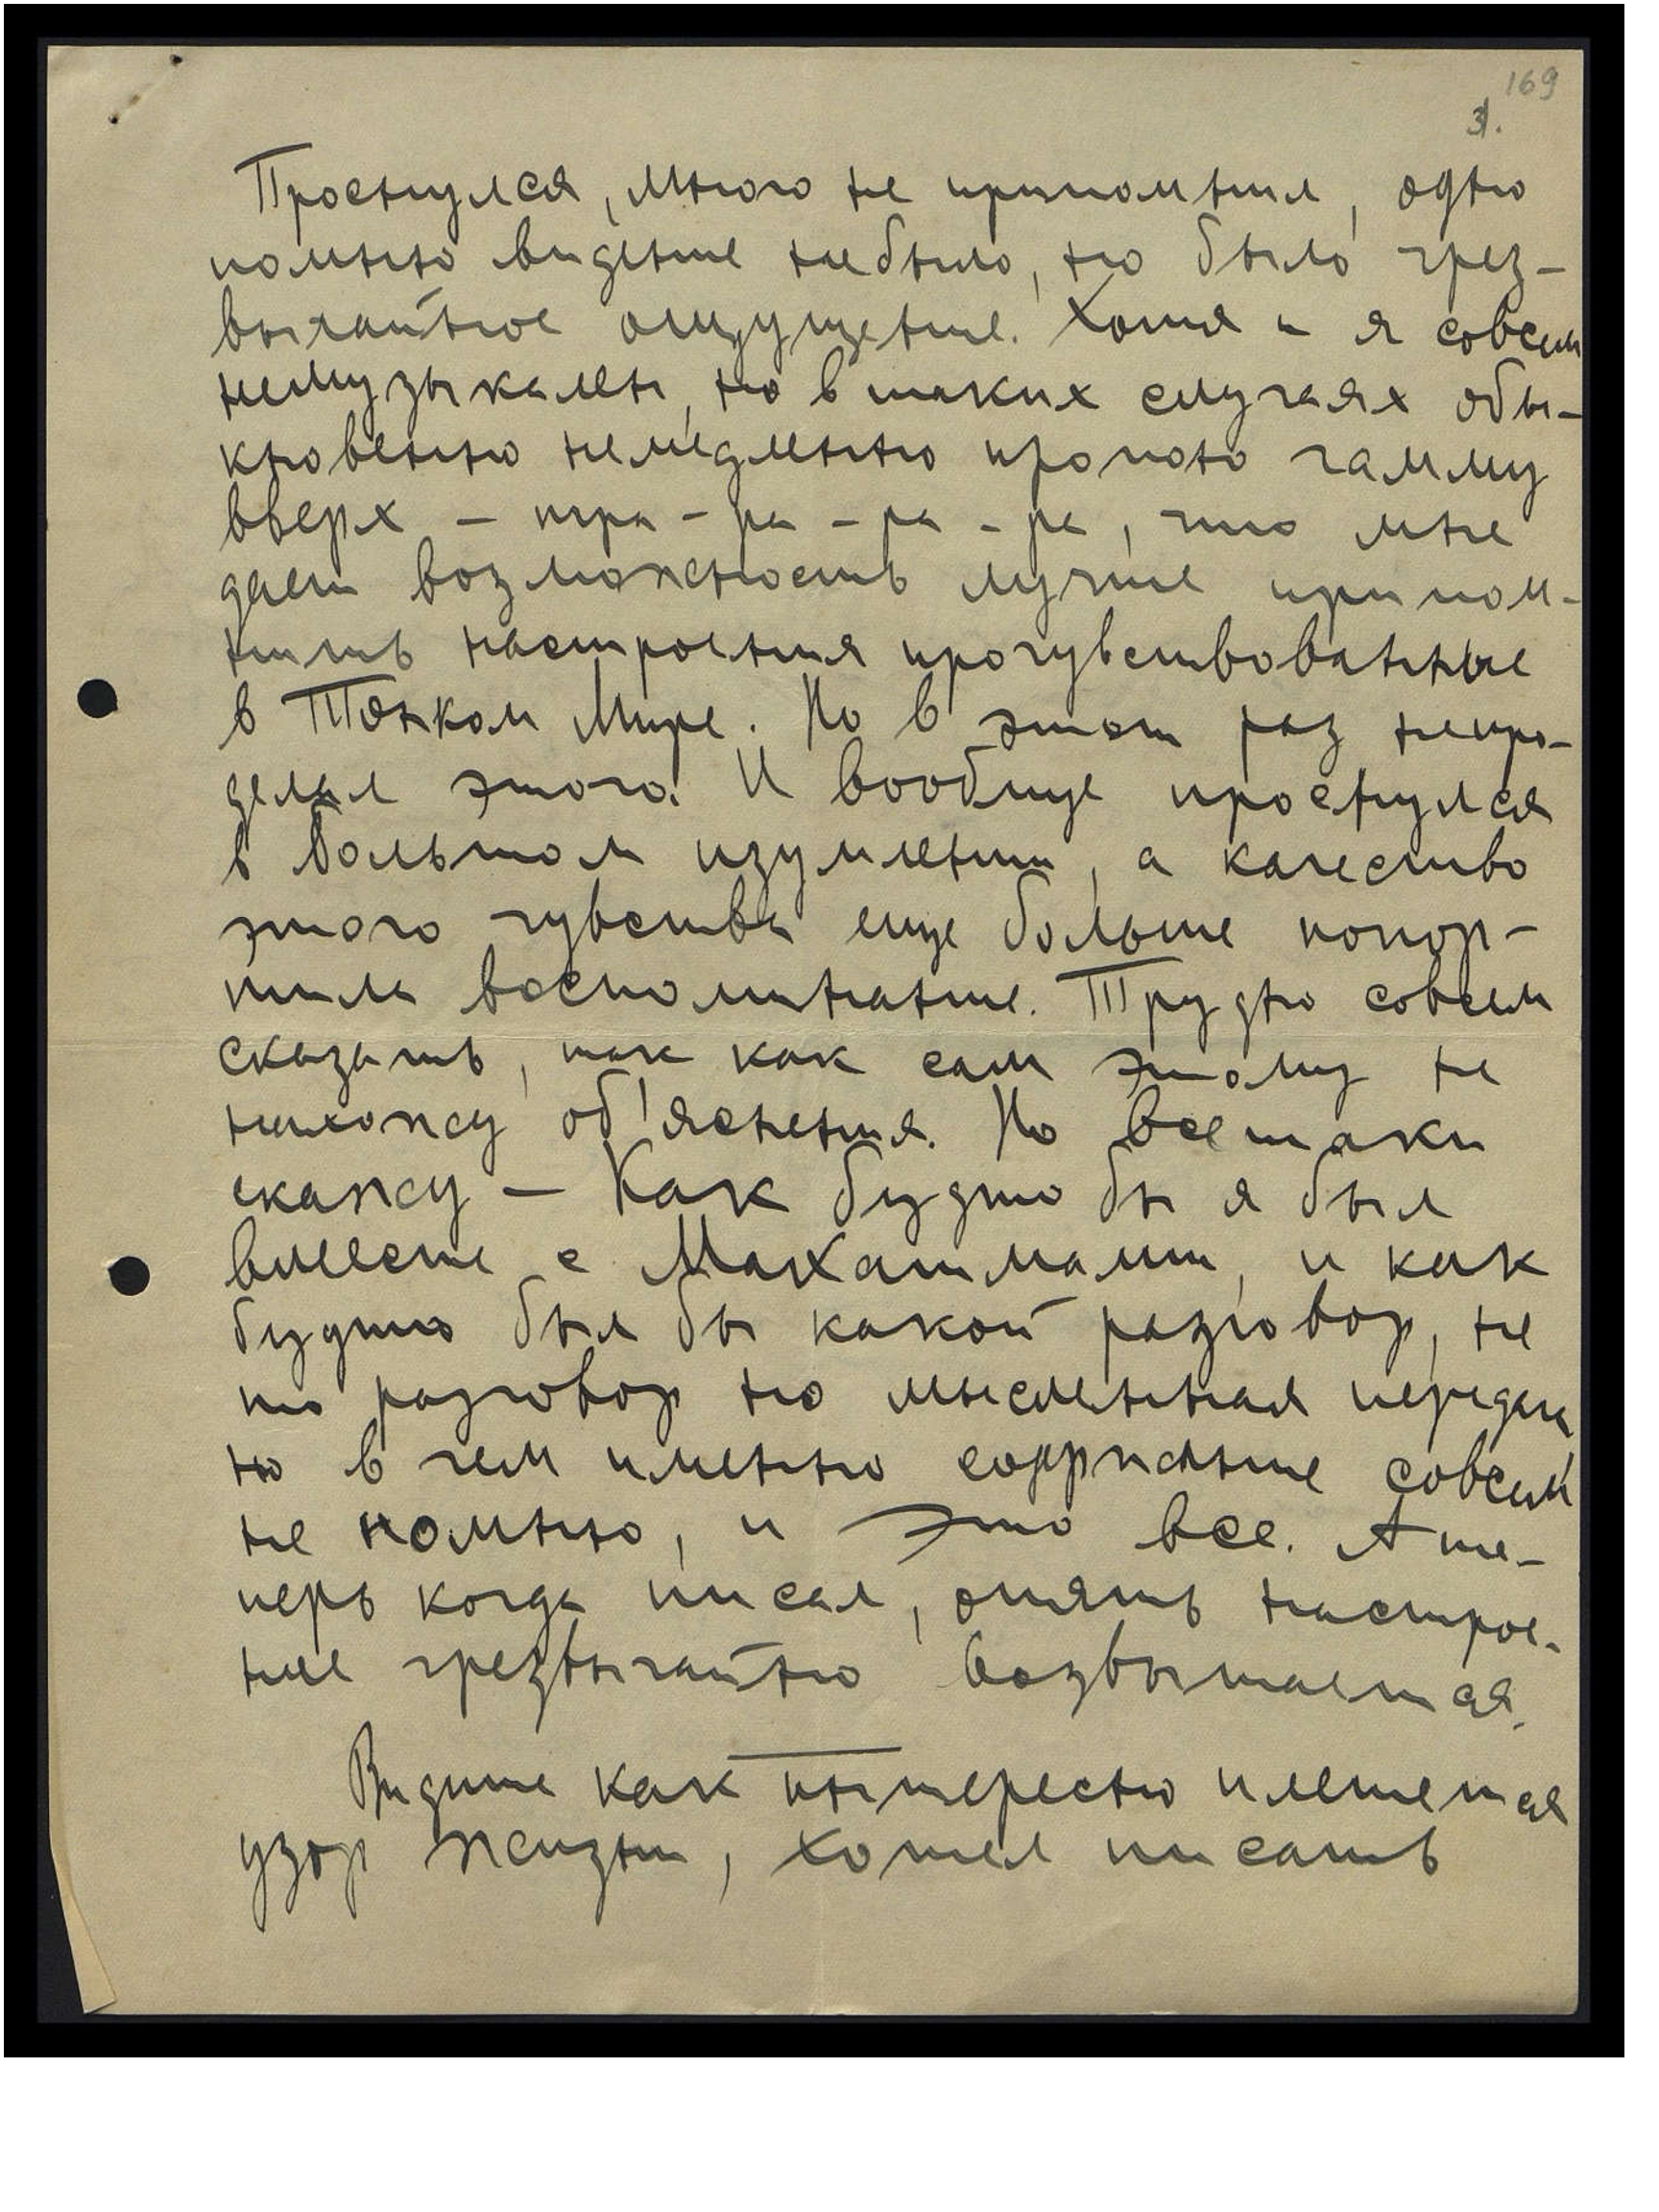 169
3.
Проснулся, много не припомнил, одно
помню видение небыло, но было чрез-
вычайное ощущение. Хотя и я совсем
немузыкален, но в таких случаях обы-
кновенно немедленно пропою гамму
вверх – тра – ра – ра – ра, что мне
дает возможность лучше припом-
нить настроения прочувствованные
в Тонком Мире. Но в этот раз непро-
делал этого. И вообще проснулся
в большом изумлении, а качество
этого чувства еще больше попор-
тила воспоминание. Трудно совсем
сказать, так как сам этому не
нахожу об'яснения. Но всетаки
скажу – Как будто бы я был
вместе с Махатмами, и как
будто был бы какой разговор, не
то разговор но мысленная передача
но в чем именно содержание совсем
не помню, и это все. А те-
перь когда писал, опять настрое-
ние чрезвычайно возвышается.
Видите как интересно плетется
узор жизни, хотел писать